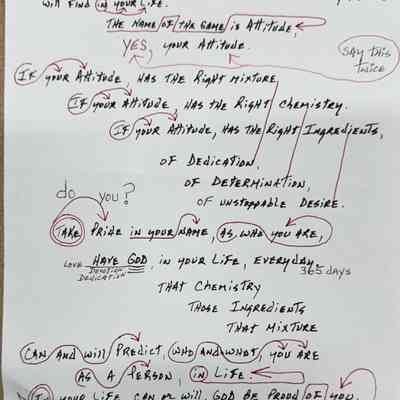 will Find in your Life.
The Name of the Game is Attitude,
YES, your Attitude.
SAY THIS
TWICE
If your Attitude, has the Right Mixture
If your Attitude, has the Right Chemistry.
If your Attitude, has the Right Ingredients,
of Dedication,
of Determination,
of unstoppable Desire.
do you?
Take Pride in your Name, as who you are,
Love Have God, in your Life, everyday
Devotion
Dedication
365 days
That Chemistry
Those Ingredients
That Mixture
Can and will Predict, who and what, you are
as a Person, in Life.
In your Life can or will God be Proud of you